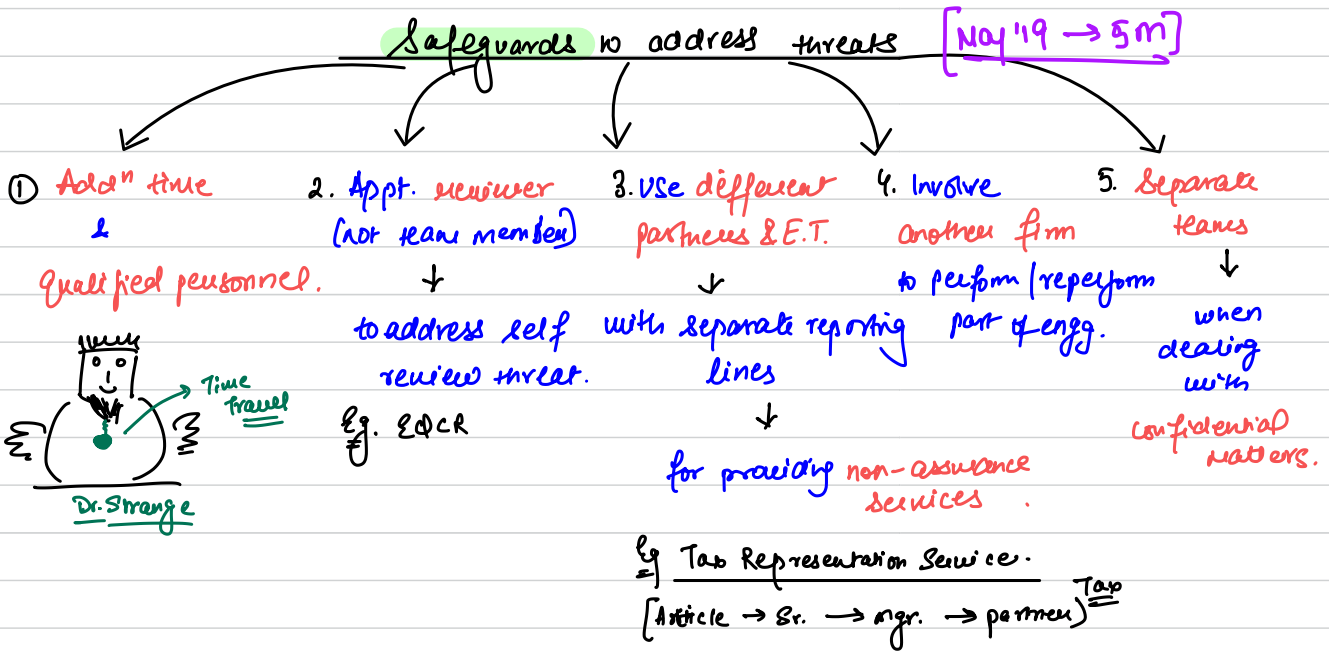 Safeguards to address threats [May '19 → 5m]
① Addⁿ time
&
Qualified personnel.
Time
Travel
Dr. Strange
2. Appt. reviewer
(not team member)
↓
to address self
review threat.
Eg. EQCR
3. Use different
partners & E.T.
↓
with separate reporting
lines
↓
for providing non-assurance
services.
Eg Tax Representation Service.
[Article → Sr. → mgr. → partner) Tax
4. Involve
another firm
to perform/reperform
part of engg.
5. Separate
teams
↓
when
dealing
with
confidential
matters.